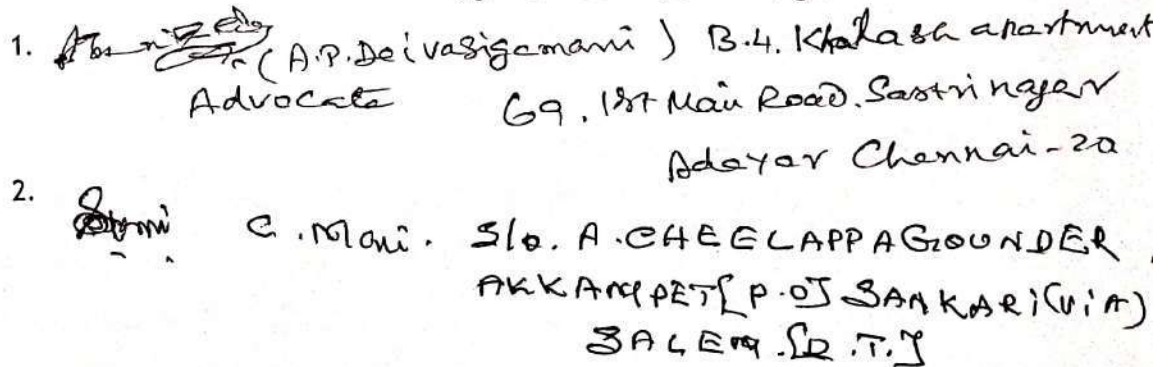 1. (A.P. Deivasigamani) B.4. Khailash apartment
Advocate 69, 1st Main Road. Sastri nagar
Adayar Chennai-20
2. C. Mani. S/o. A. CHEELAPPAGOUNDER,
AKKAMPET [P.O] SANKARi (ViA)
SALEM. [D.T.]